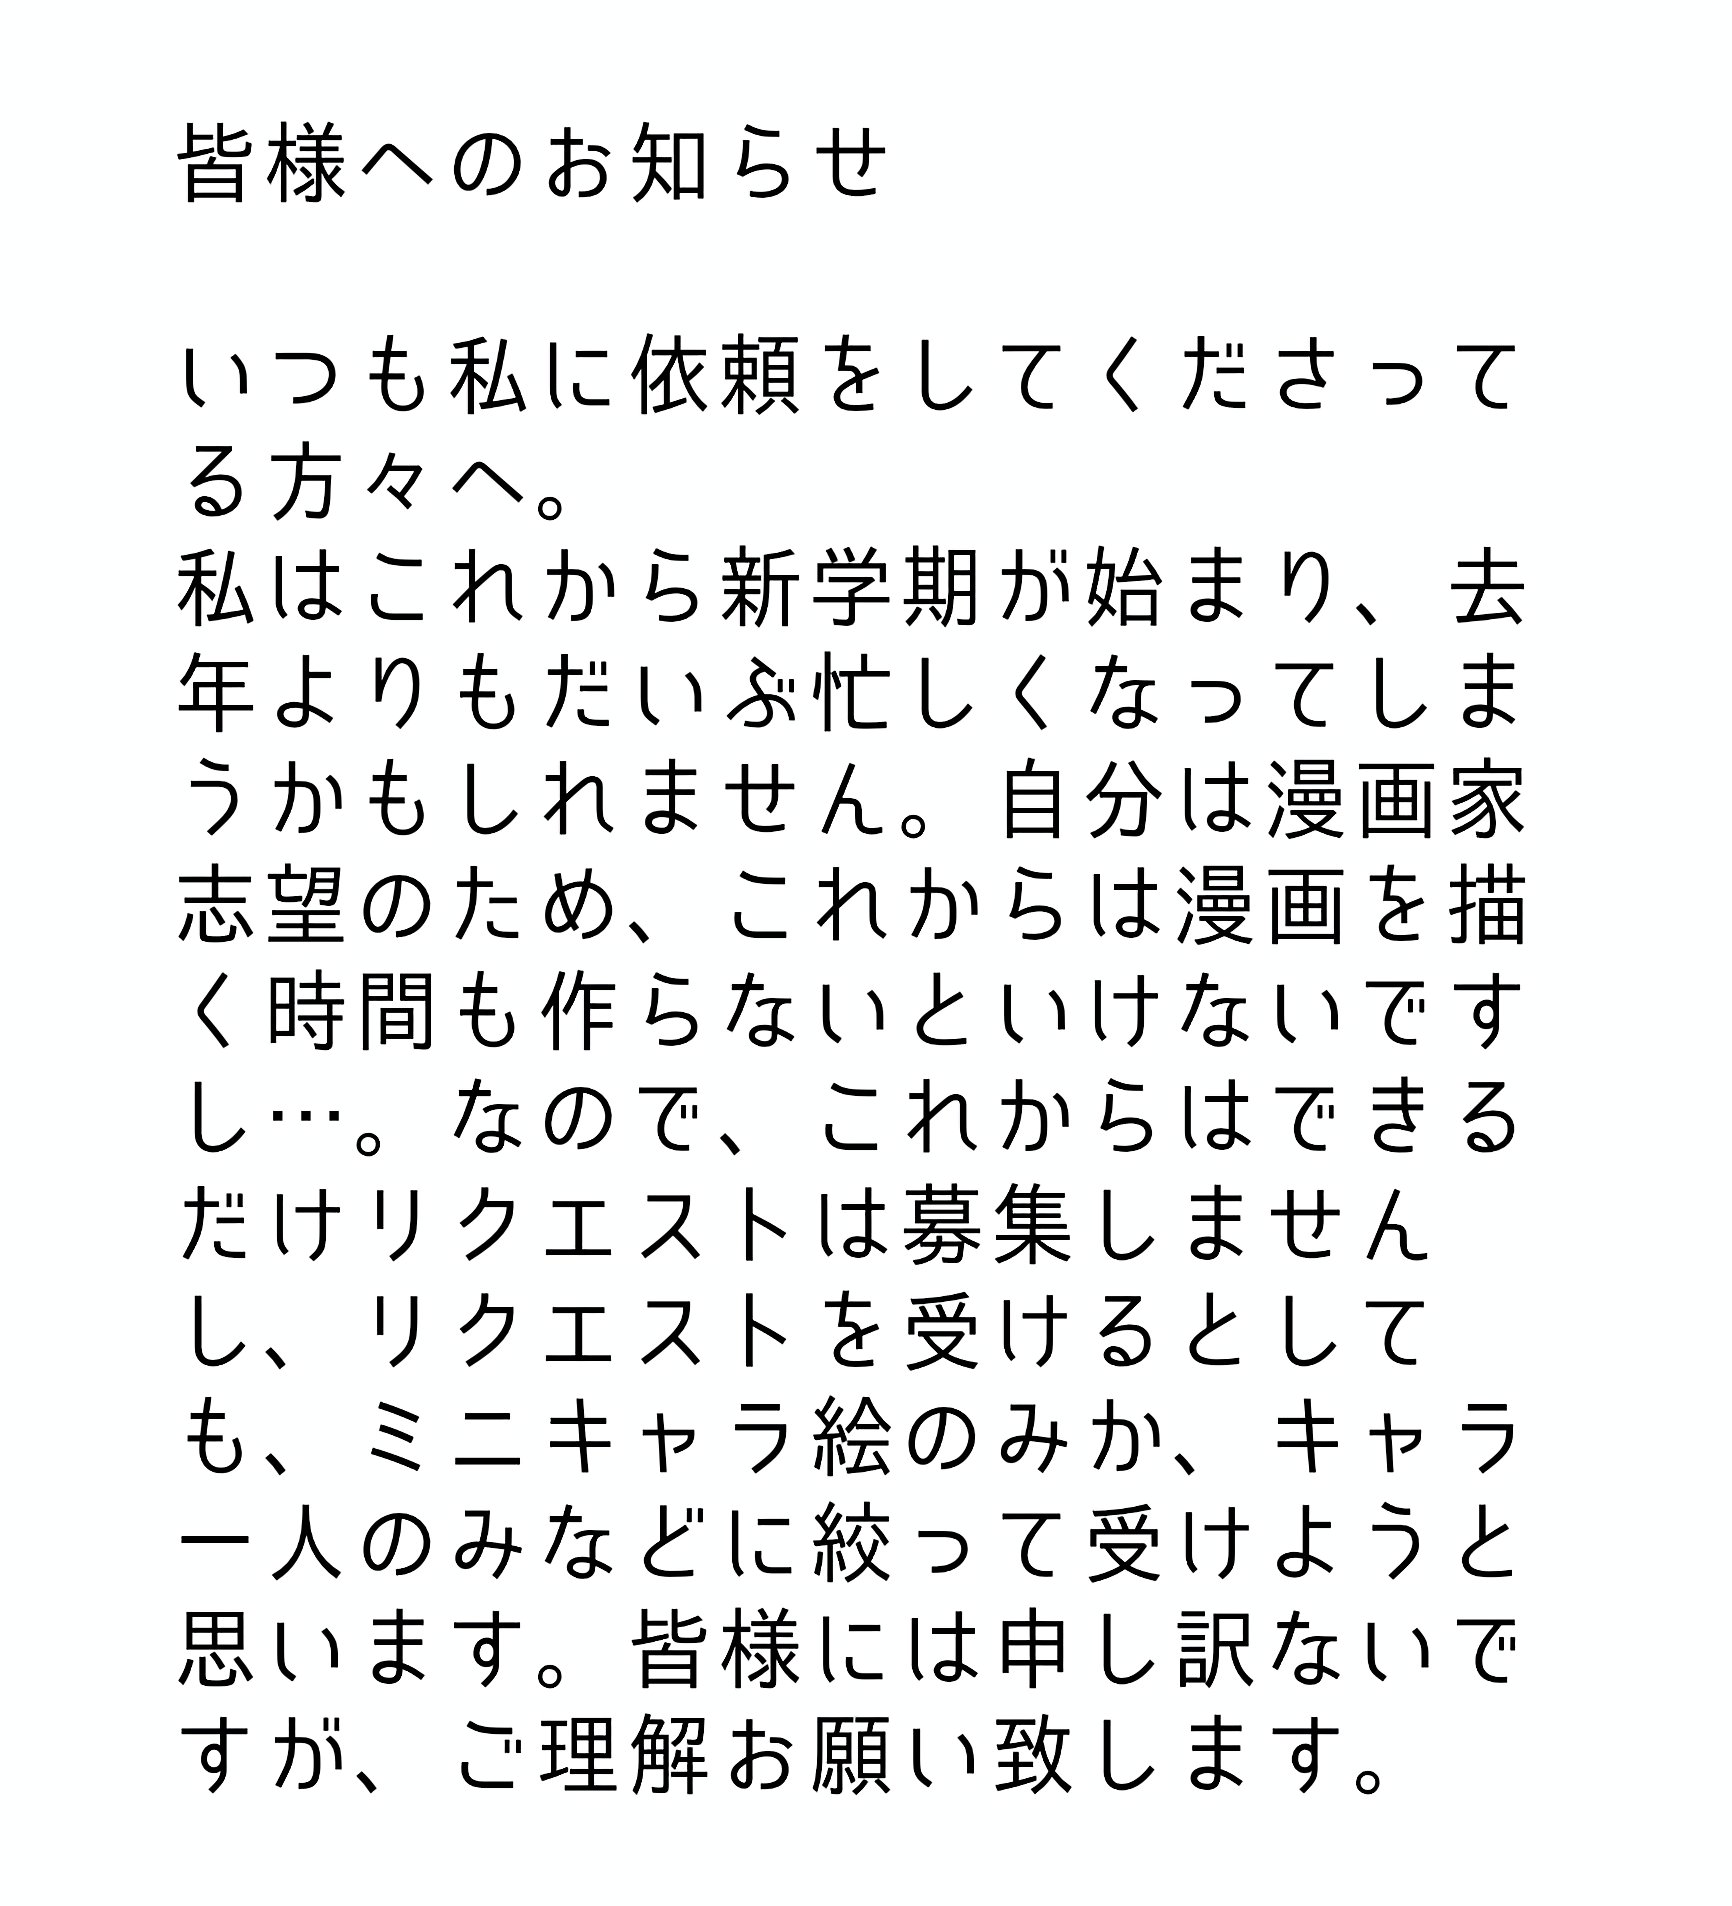 皆様へのお知らせ
いつも私に依頼をしてくださって
る方々へ。
私はこれから新学期が始まり、去
年よりもだいぶ忙しくなってしま
うかもしれません。自分は漫画家
志望のため、これからは漫画を描
く時間も作らないといけないです
し…。なので、これからはできる
だけリクエストは募集しません
し、リクエストを受けるとして
も、ミニキャラ絵のみか、キャラ
一人のみなどに絞って受けようと
思います。皆様には申し訳ないで
すが、ご理解お願い致します。